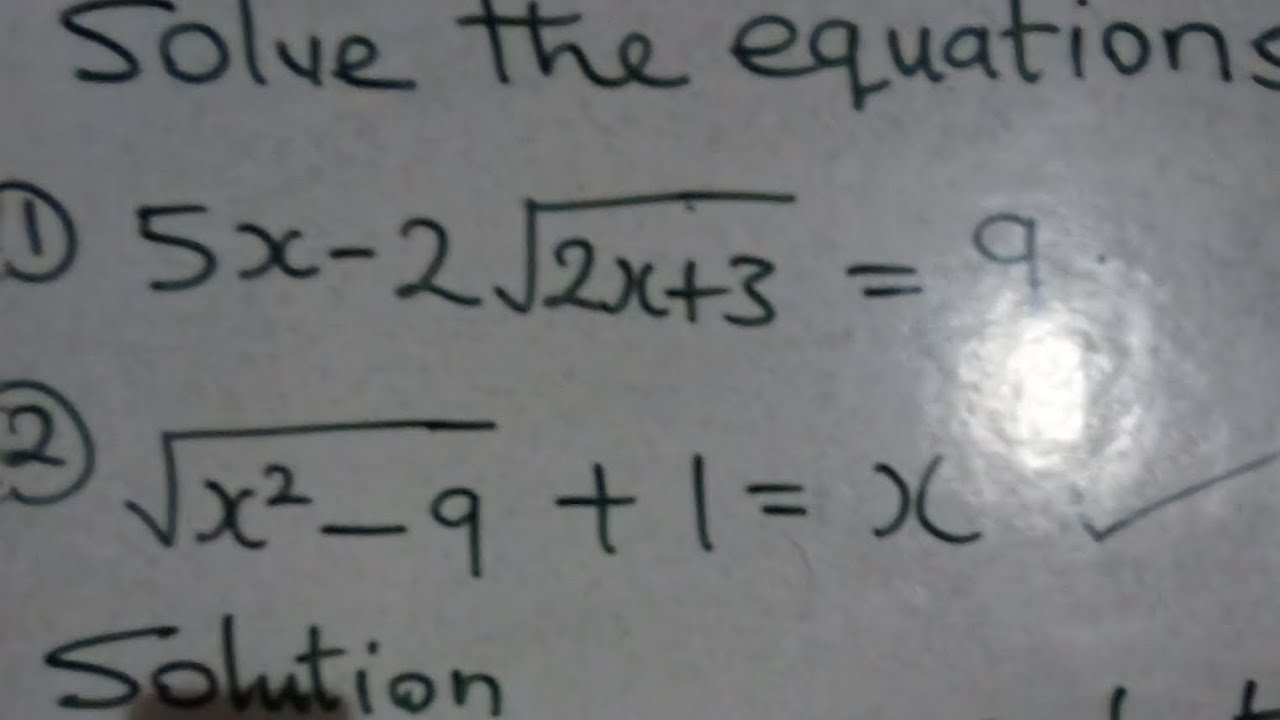 Solve the equations
① 5x-2√(2x+3) = 9.
② √(x²-9) + 1 = x
Solution